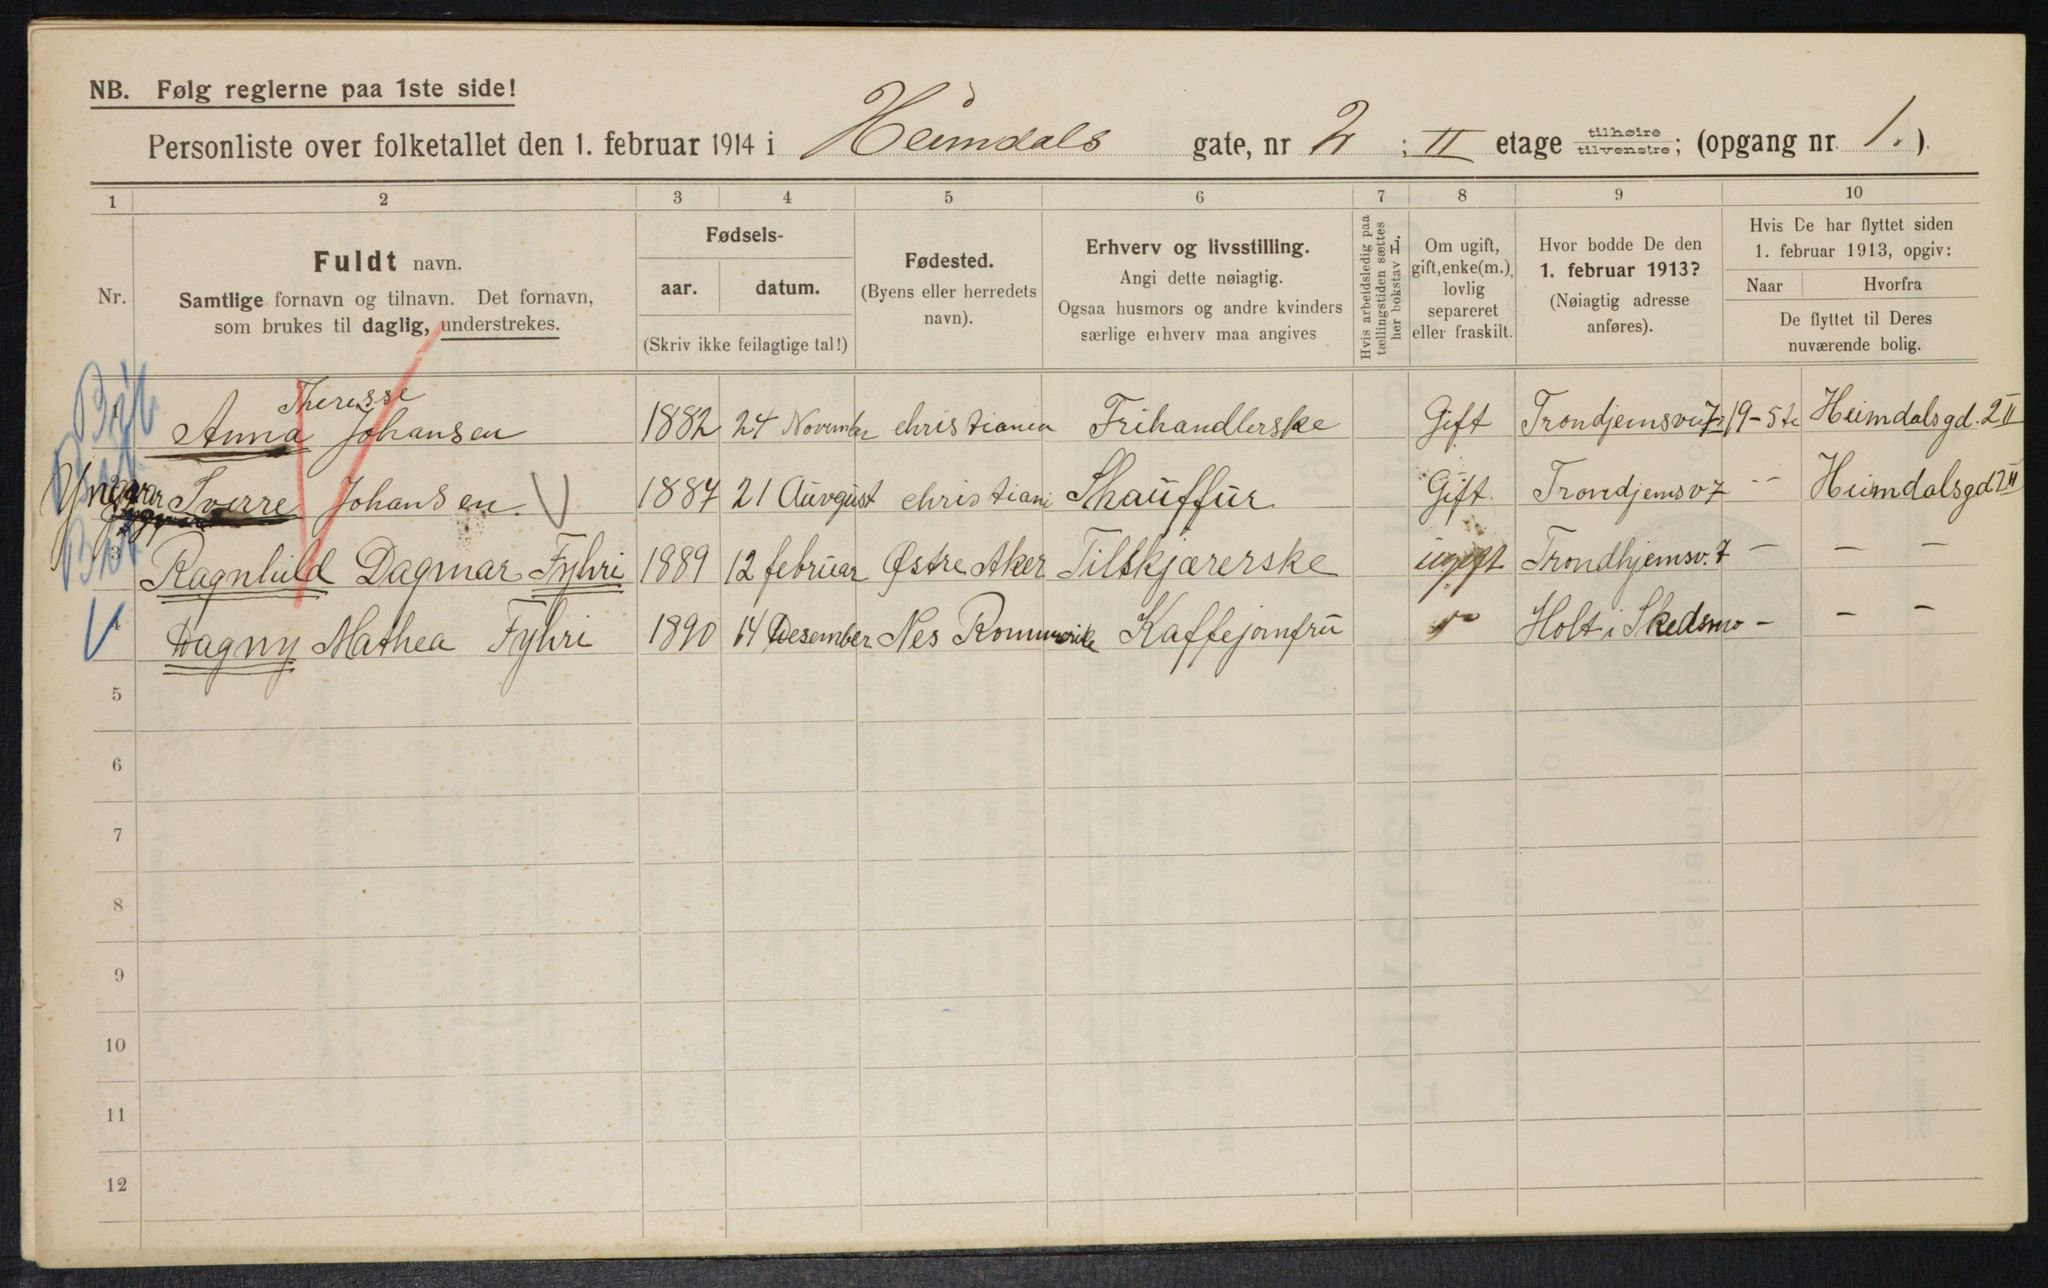 NB. Følg reglerne paa 1ste side!
Personliste over folketallet den 1. februar 1914 i Heimdals gate, nr 2 ; II etage tilhøire tilvenstre; (opgang nr. 1.)
1 2 3 4 5 6 7 8 9 10
Nr.
Fuldt navn.
Samtlige fornavn og tilnavn. Det fornavn,
som brukes til daglig, understrekes.
Fødsels-
aar. datum.
(Skriv ikke feilagtige tal!)
Fødested.
(Byens eller herredets
navn).
Erhverv og livsstilling.
Angi dette nøiagtig.
Ogsaa husmors og andre kvinders
særlige erhverv maa angives
Hvis arbeidsledig paa
tællingstiden sættes
her bokstav L.
Om ugift,
gift, enke(m.),
lovlig
separeret
eller fraskilt.
Hvor bodde De den
1. februar 1913?
(Nøiagtig adresse
anføres).
Hvis De har flyttet siden
1. februar 1913, opgiv:
Naar Hvorfra
De flyttet til Deres
nuværende bolig.
Theresse
Anna Johansen 1882 24 November christiania Frihandlerske Gift Trondjemsvei 7 19-5 Heimdalsgd. 2 II
Yngvar Sverre Johansen. 1887 21 Auvgust christiani Shauffur Gift. Trondjemsv 7 - - Heimdalsgd 2 II
3 Ragnhild Dagmar Fyhri 1889 12 februar Østre Aker Tilskjærerske ugift Trondhjemsv. 7 - - -
4 Dagny Mathea Fyhri 1890 14 Desember Nes Rommerike Kaffejomfru " Holt i Skedsmo - - -
5
6
7
8
9
10
11
12